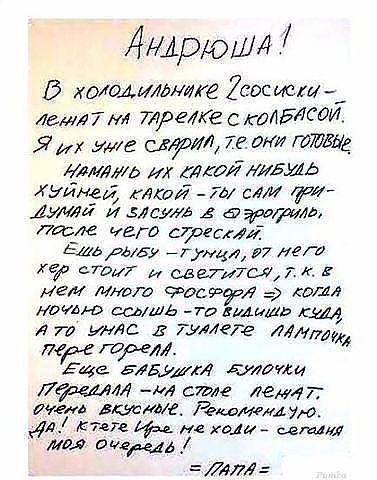 Андрюша!
В холодильнике 2 сосиски –
лежат на тарелке с колбасой.
Я их уже сварил, т.е. они готовые.
Намажь их какой нибудь
хуйней, какой – ты сам при-
думай и засунь в аэрогриль,
после чего стрескай.
Ешь рыбу – тунца, от него
хер стоит и светится, т.к. в
нем много фосфора ⇒ когда
ночью ссышь – то видишь куда,
а то у нас в туалете лампочка
перегорела.
Еще бабушка булочки
передала – на столе лежат.
очень вкусные. Рекомендую.
Да! К тете Ире не ходи – сегодня
моя очередь!
= Папа =
Pumba